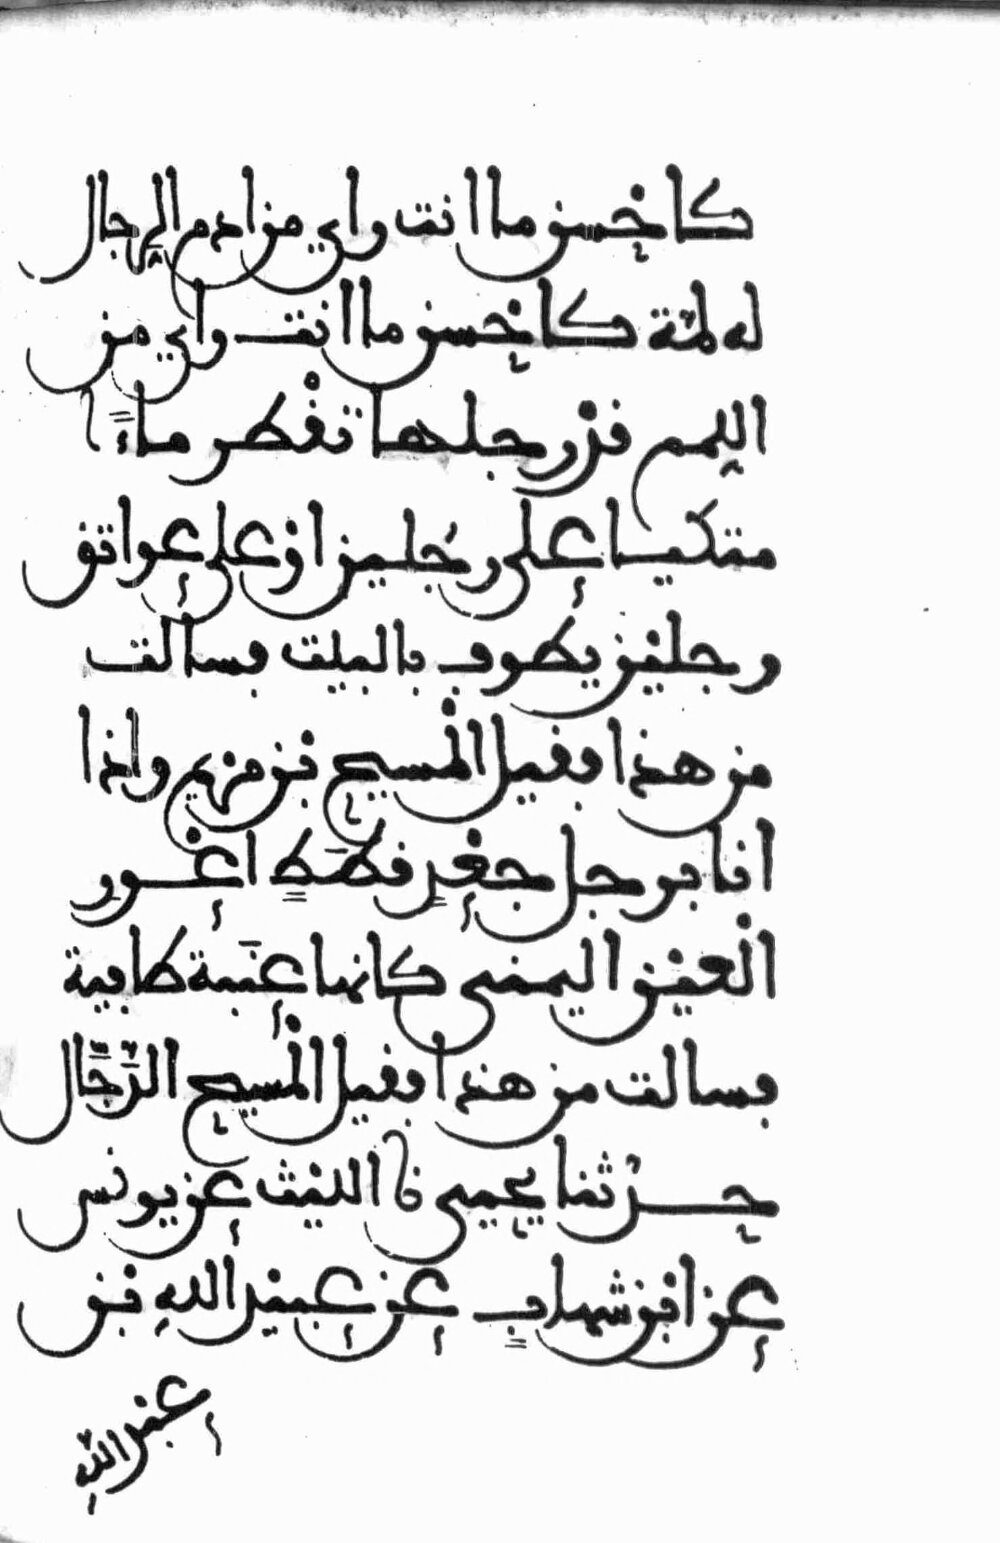 كاحسن ما انت راي من ادم الرجال
له لمة كاحسن ما انت راي من
اللمم قد رجلها تقطر ماءً
متكيا على رجلين او على عواتق
رجلين يطوف بالبيت فسالت
من هذا فقيل المسيح بن مريم واذا
انا برجل جعدٍ قططٍ اعور
العين اليمنى كانها عنبة طافية
فسالت من هذا فقيل المسيح الدَّجَّال
حدثنا يحيى نا الليث عن يونس
عن ابن شهابٍ عن عبيد الله بن
عبد الله